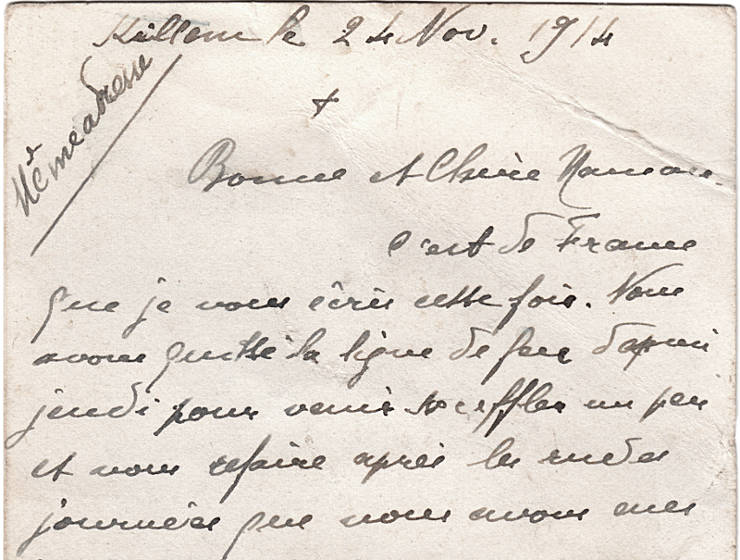 Killem le 24 Nov. 1914
Même adresse
+
Bonne et Chère Maman.
C'est de France
que je vous écris cette fois. Nous
avons quitté la ligne de feu depuis
jeudi pour venir souffler un peu
et nous refaire après les rudes
journées que nous avons eues